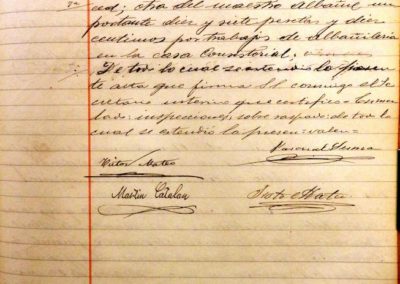 ad; otra del maestro Albañil im
portante diez y siete pesetas y diez
centimos por trabajos de albañileria
en la casa Consistorial,
De todo lo cual se extendio la presen
te acta que firma S.S. conmigo el Se
cretario interino que certifico=Enmen
lados= sobre raspado= de todo lo
cual se extendio la presen=valen=
Pascual
Victor Mateo
Martin Catalan
Justo Mata